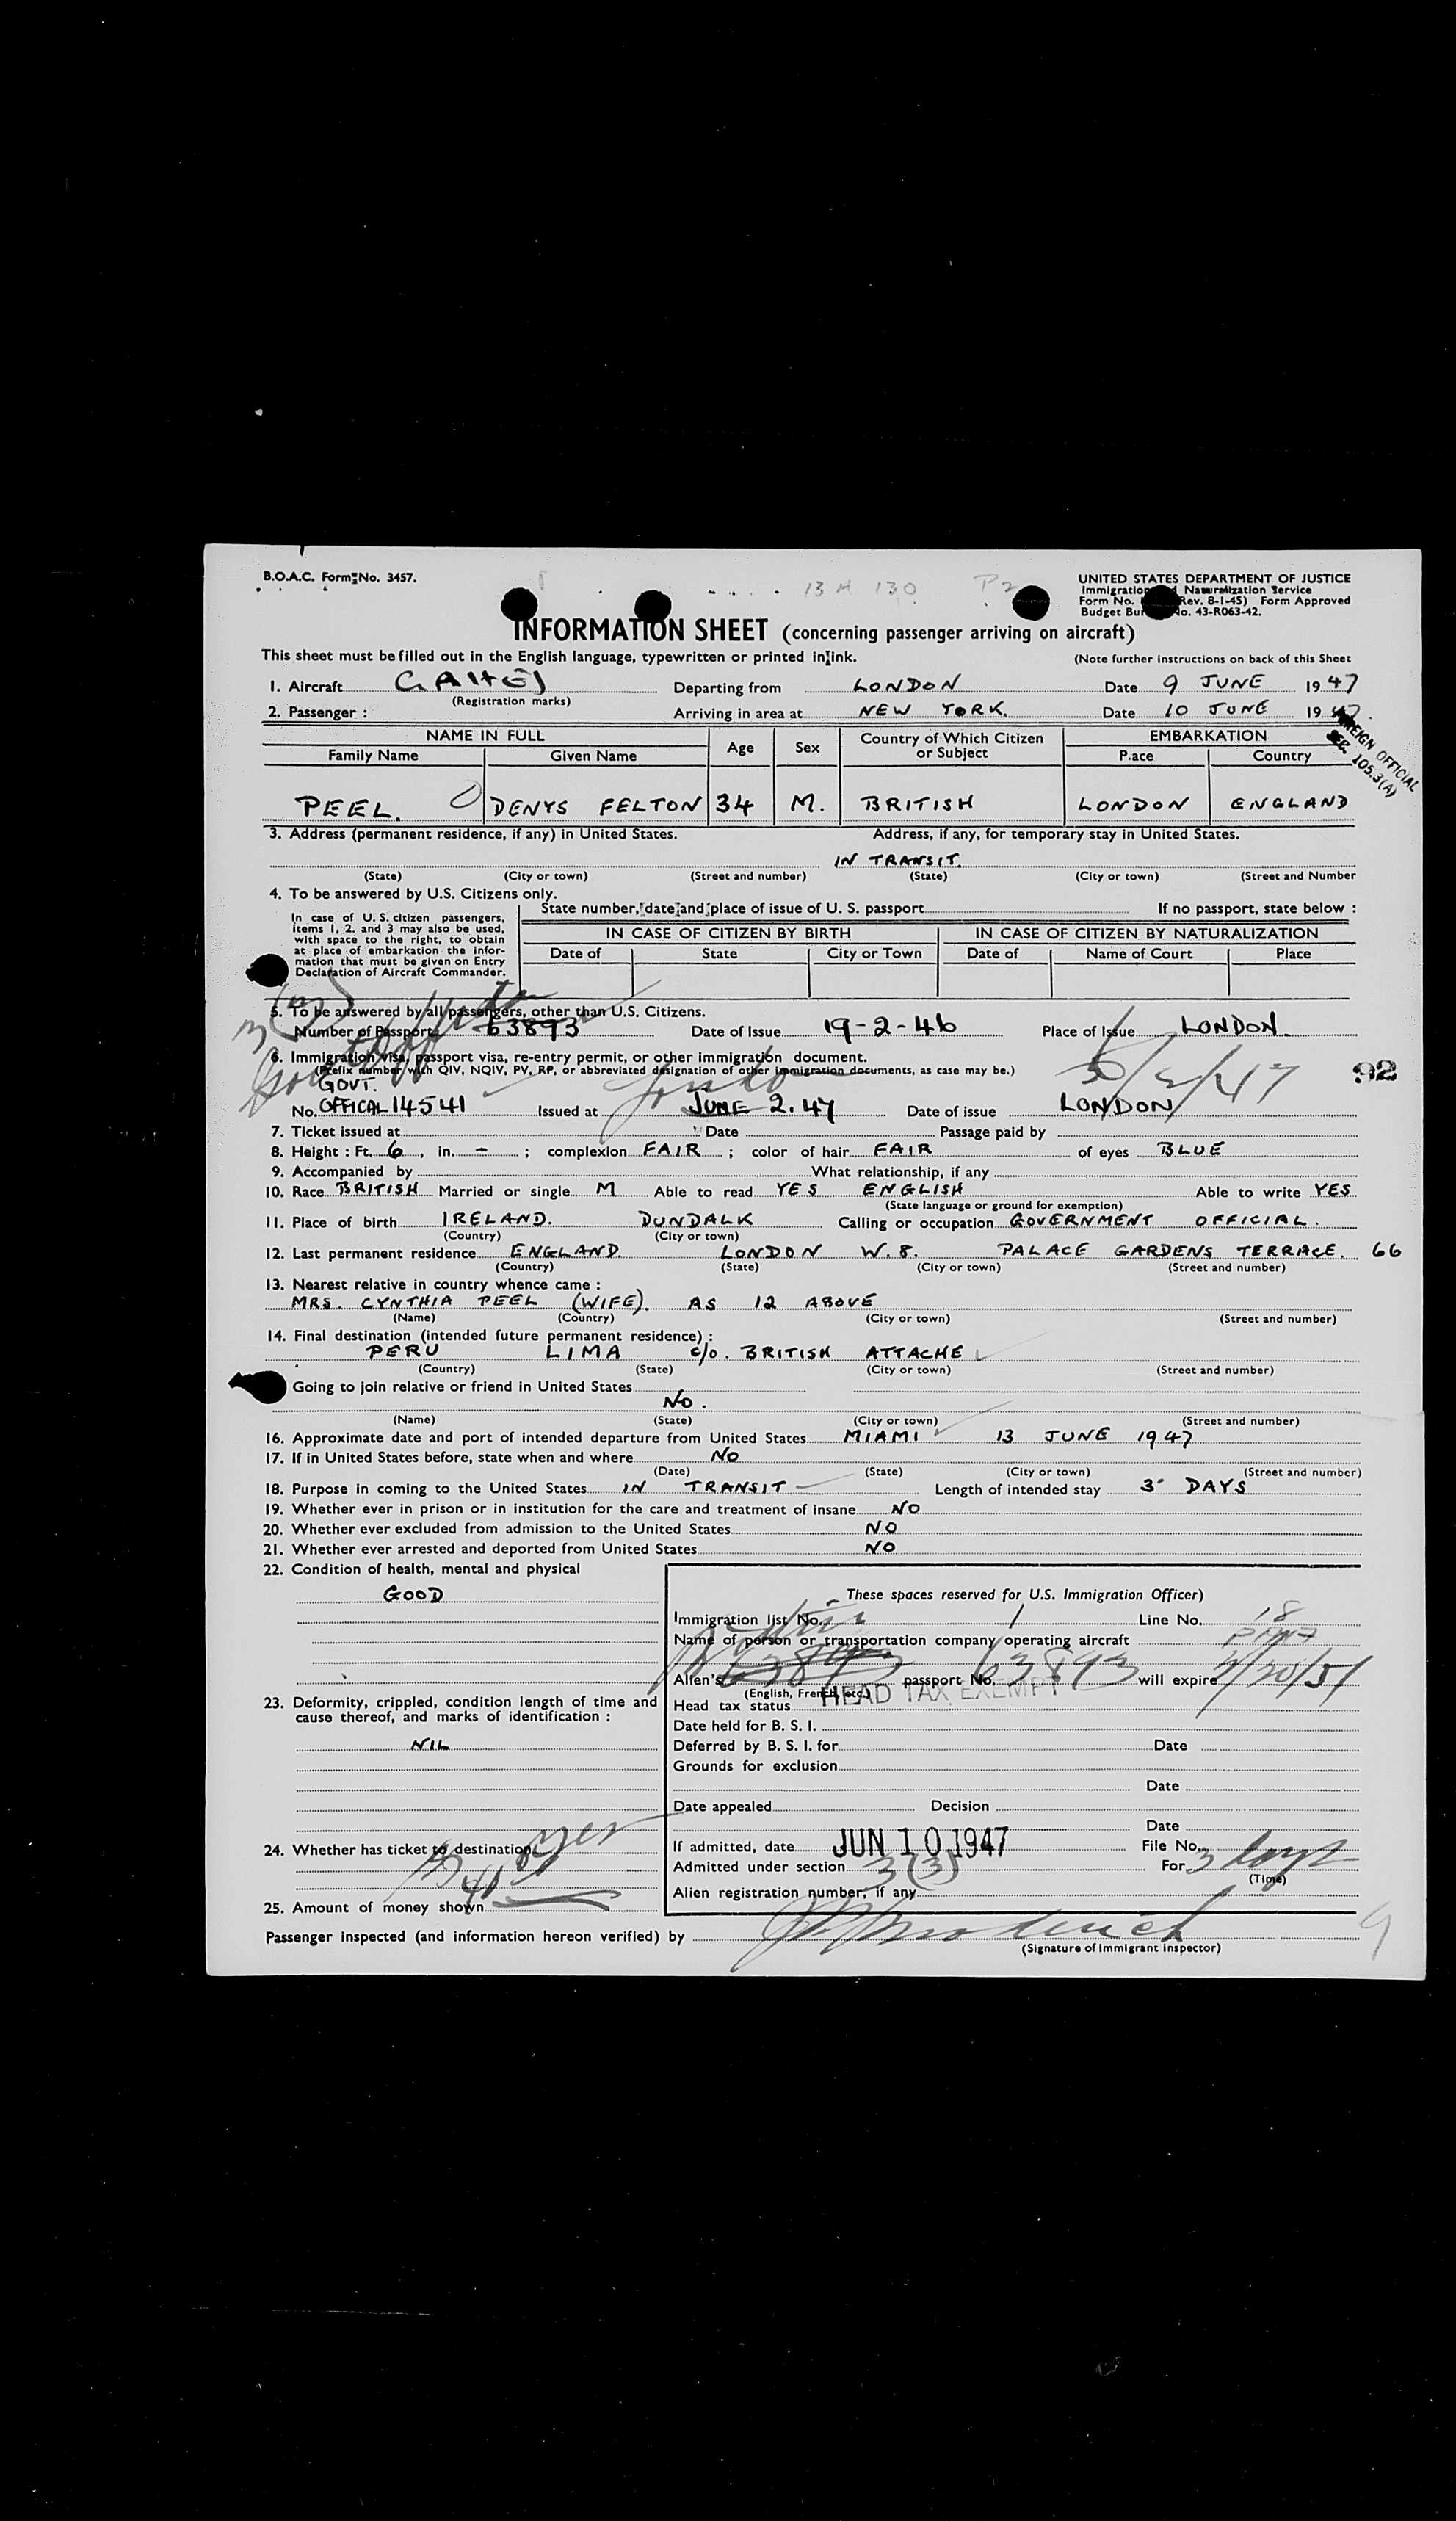 B.O.A.C. Form No. 3457.
13 A 130
UNITED STATES DEPARTMENT OF JUSTICE
Immigration Naturalization Service
Form No. Rev. 8-1-45) Form Approved
Budget No. 43-R063-42.
INFORMATION SHEET (concerning passenger arriving on aircraft)
This sheet must be filled out in the English language, typewritten or printed in ink. (Note further instructions on back of this Sheet
1. Aircraft Departing from LONDON Date 9 JUNE 1947
(Registration marks)
2. Passenger : Arriving in area at NEW YORK. Date 10 JUNE 1947.
FOREIGN OFFICIAL
SEC. 105.3(A)
NAME IN FULL Age Sex Country of Which Citizen or Subject EMBARKATION
Family Name Given Name P.ace Country
PEEL. DENYS FELTON 34 M. BRITISH LONDON ENGLAND
3. Address (permanent residence, if any) in United States. Address, if any, for temporary stay in United States.
IN TRANSIT.
(State) (City or town) (Street and number) (State) (City or town) (Street and Number
4. To be answered by U.S. Citizens only.
State number, date and place of issue of U. S. passport If no passport, state below :
In case of U. S. citizen passengers,
items 1, 2. and 3 may also be used,
with space to the right, to obtain
at place of embarkation the infor-
mation that must be given on Entry
Declaration of Aircraft Commander.
IN CASE OF CITIZEN BY BIRTH IN CASE OF CITIZEN BY NATURALIZATION
Date of State City or Town Date of Name of Court Place
5. To be answered by all passengers, other than U.S. Citizens.
Number of Passport 63893 Date of Issue 19-2-46 Place of Issue LONDON.
6. Immigration visa, passport visa, re-entry permit, or other immigration document.
(Prefix number with QIV, NQIV, PV, RP, or abbreviated designation of other immigration documents, as case may be.)
92
GOVT.
No. OFFICAL 14541 Issued at JUNE 2.47 Date of issue LONDON
7. Ticket issued at Date Passage paid by
8. Height : Ft. 6, in. - ; complexion FAIR ; color of hair FAIR of eyes BLUE
9. Accompanied by What relationship, if any
10. Race BRITISH Married or single M Able to read YES ENGLISH Able to write YES
(State language or ground for exemption)
11. Place of birth IRELAND. DUNDALK Calling or occupation GOVERNMENT OFFICIAL.
(Country) (City or town)
12. Last permanent residence ENGLAND. LONDON W. 8. PALACE GARDENS TERRACE. 66
(Country) (State) (City or town) (Street and number)
13. Nearest relative in country whence came :
MRS. CYNTHIA PEEL (WIFE). AS 12 ABOVE
(Name) (Country) (City or town) (Street and number)
14. Final destination (intended future permanent residence) :
PERU LIMA c/o. BRITISH ATTACHE
(Country) (State) (City or town) (Street and number)
Going to join relative or friend in United States
NO.
(Name) (State) (City or town) (Street and number)
16. Approximate date and port of intended departure from United States MIAMI 13 JUNE 1947
17. If in United States before, state when and where NO
(Date) (State) (City or town) (Street and number)
18. Purpose in coming to the United States IN TRANSIT Length of intended stay 3 DAYS
19. Whether ever in prison or in institution for the care and treatment of insane NO
20. Whether ever excluded from admission to the United States NO
21. Whether ever arrested and deported from United States NO
22. Condition of health, mental and physical
GOOD
These spaces reserved for U.S. Immigration Officer)
Immigration list No. 1 Line No. 18
Name of person or transportation company operating aircraft
Alien's passport No. 63893 will expire
(English, French, etc.)
Head tax status HEAD TAX EXEMPT
23. Deformity, crippled, condition length of time and
cause thereof, and marks of identification :
NIL
Date held for B. S. I.
Deferred by B. S. I. for Date
Grounds for exclusion
Date
Date appealed Decision
Date
24. Whether has ticket to destination yes
If admitted, date JUN 10 1947 File No.
Admitted under section 3(3) For 3 days
(Time)
Alien registration number, if any
25. Amount of money shown
Passenger inspected (and information hereon verified) by
(Signature of Immigrant Inspector)
9